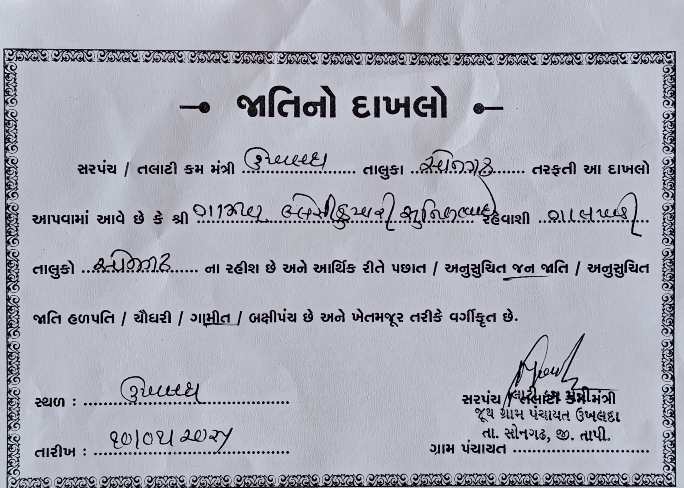 જાતિનો દાખલો
સરપંચ / તલાટી કમ મંત્રી ઉખલદા તાલુકા સોનગઢ તરફતી આ દાખલો
આપવામાં આવે છે કે શ્રી ગામીત સુનિલભાઈ રહેવાશી
તાલુકો સોનગઢ ના રહીશ છે અને આર્થિક રીતે પછાત / અનુસુચિત જન જાતિ / અનુસુચિત
જાતિ હળપતિ / ચૌધરી / ગામીત / બક્ષીપંચ છે અને ખેતમજૂર તરીકે વર્ગીકૃત છે.
સ્થળ : ઉખલદા
સરપંચ / તલાટી કમ મંત્રી
જૂથ ગ્રામ પંચાયત ઉખલદા
તા. સોનગઢ, જી. તાપી.
તારીખ :
ગ્રામ પંચાયત